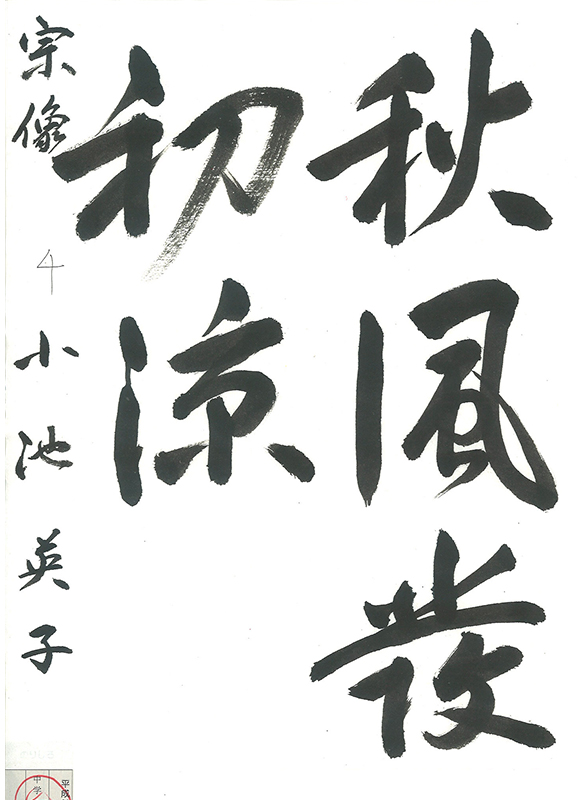 秋風發
初涼
宗像 4 小池英子
平成
中学